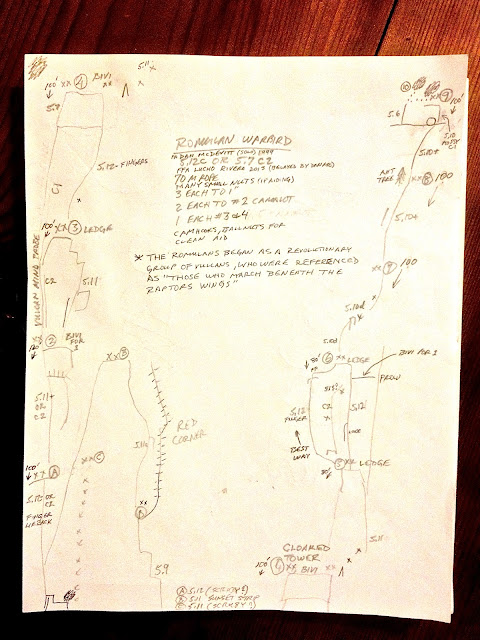 ROMULAN WARBIRD
5.12C OR 5.7 C2
70 M ROPE
MANY SMALL NUTS (IF AIDING)
3 EACH TO 1"
2 EACH TO #2 CAMALOT
1 EACH #3 & 4
CAMHOOKS, BALLNUTS FOR
CLEAN AID
* THE ROMULANS BEGAN AS A REVOLUTIONARY
GROUP OF VULCANS, WHO WERE REFERENCED
AS "THOSE WHO MARCH BENEATH THE
RAPTORS WINGS"
100'
XX 4 BIVI
5.11 X
5.9
5.12- FINGERS
C1
100'
XX 3 LEDGE
VULCAN MIND
C2
5.11
2
BIVI
FOR
3
5.11+
OR
C2
XX B
RED
CORNER
100'
XX A
XX C
5.10 OR
C1
FINGER
LIEBACK
XX
A
5.9
A 5.12
B 5.11 SUNSET STRIP
C 5.11
9
100'
5.6
5.10
C1
5.10+
ANT
TREE
XX 8
100
5.10+
7
100
5.10d
6 XX LEDGE
BIVI FOR 1
PROW
5.12
FINGER
C2
5.12
BEST
WAY
5 XX LEDGE
5.11
GLOATED
TOWER
100'
4 XX BIVI